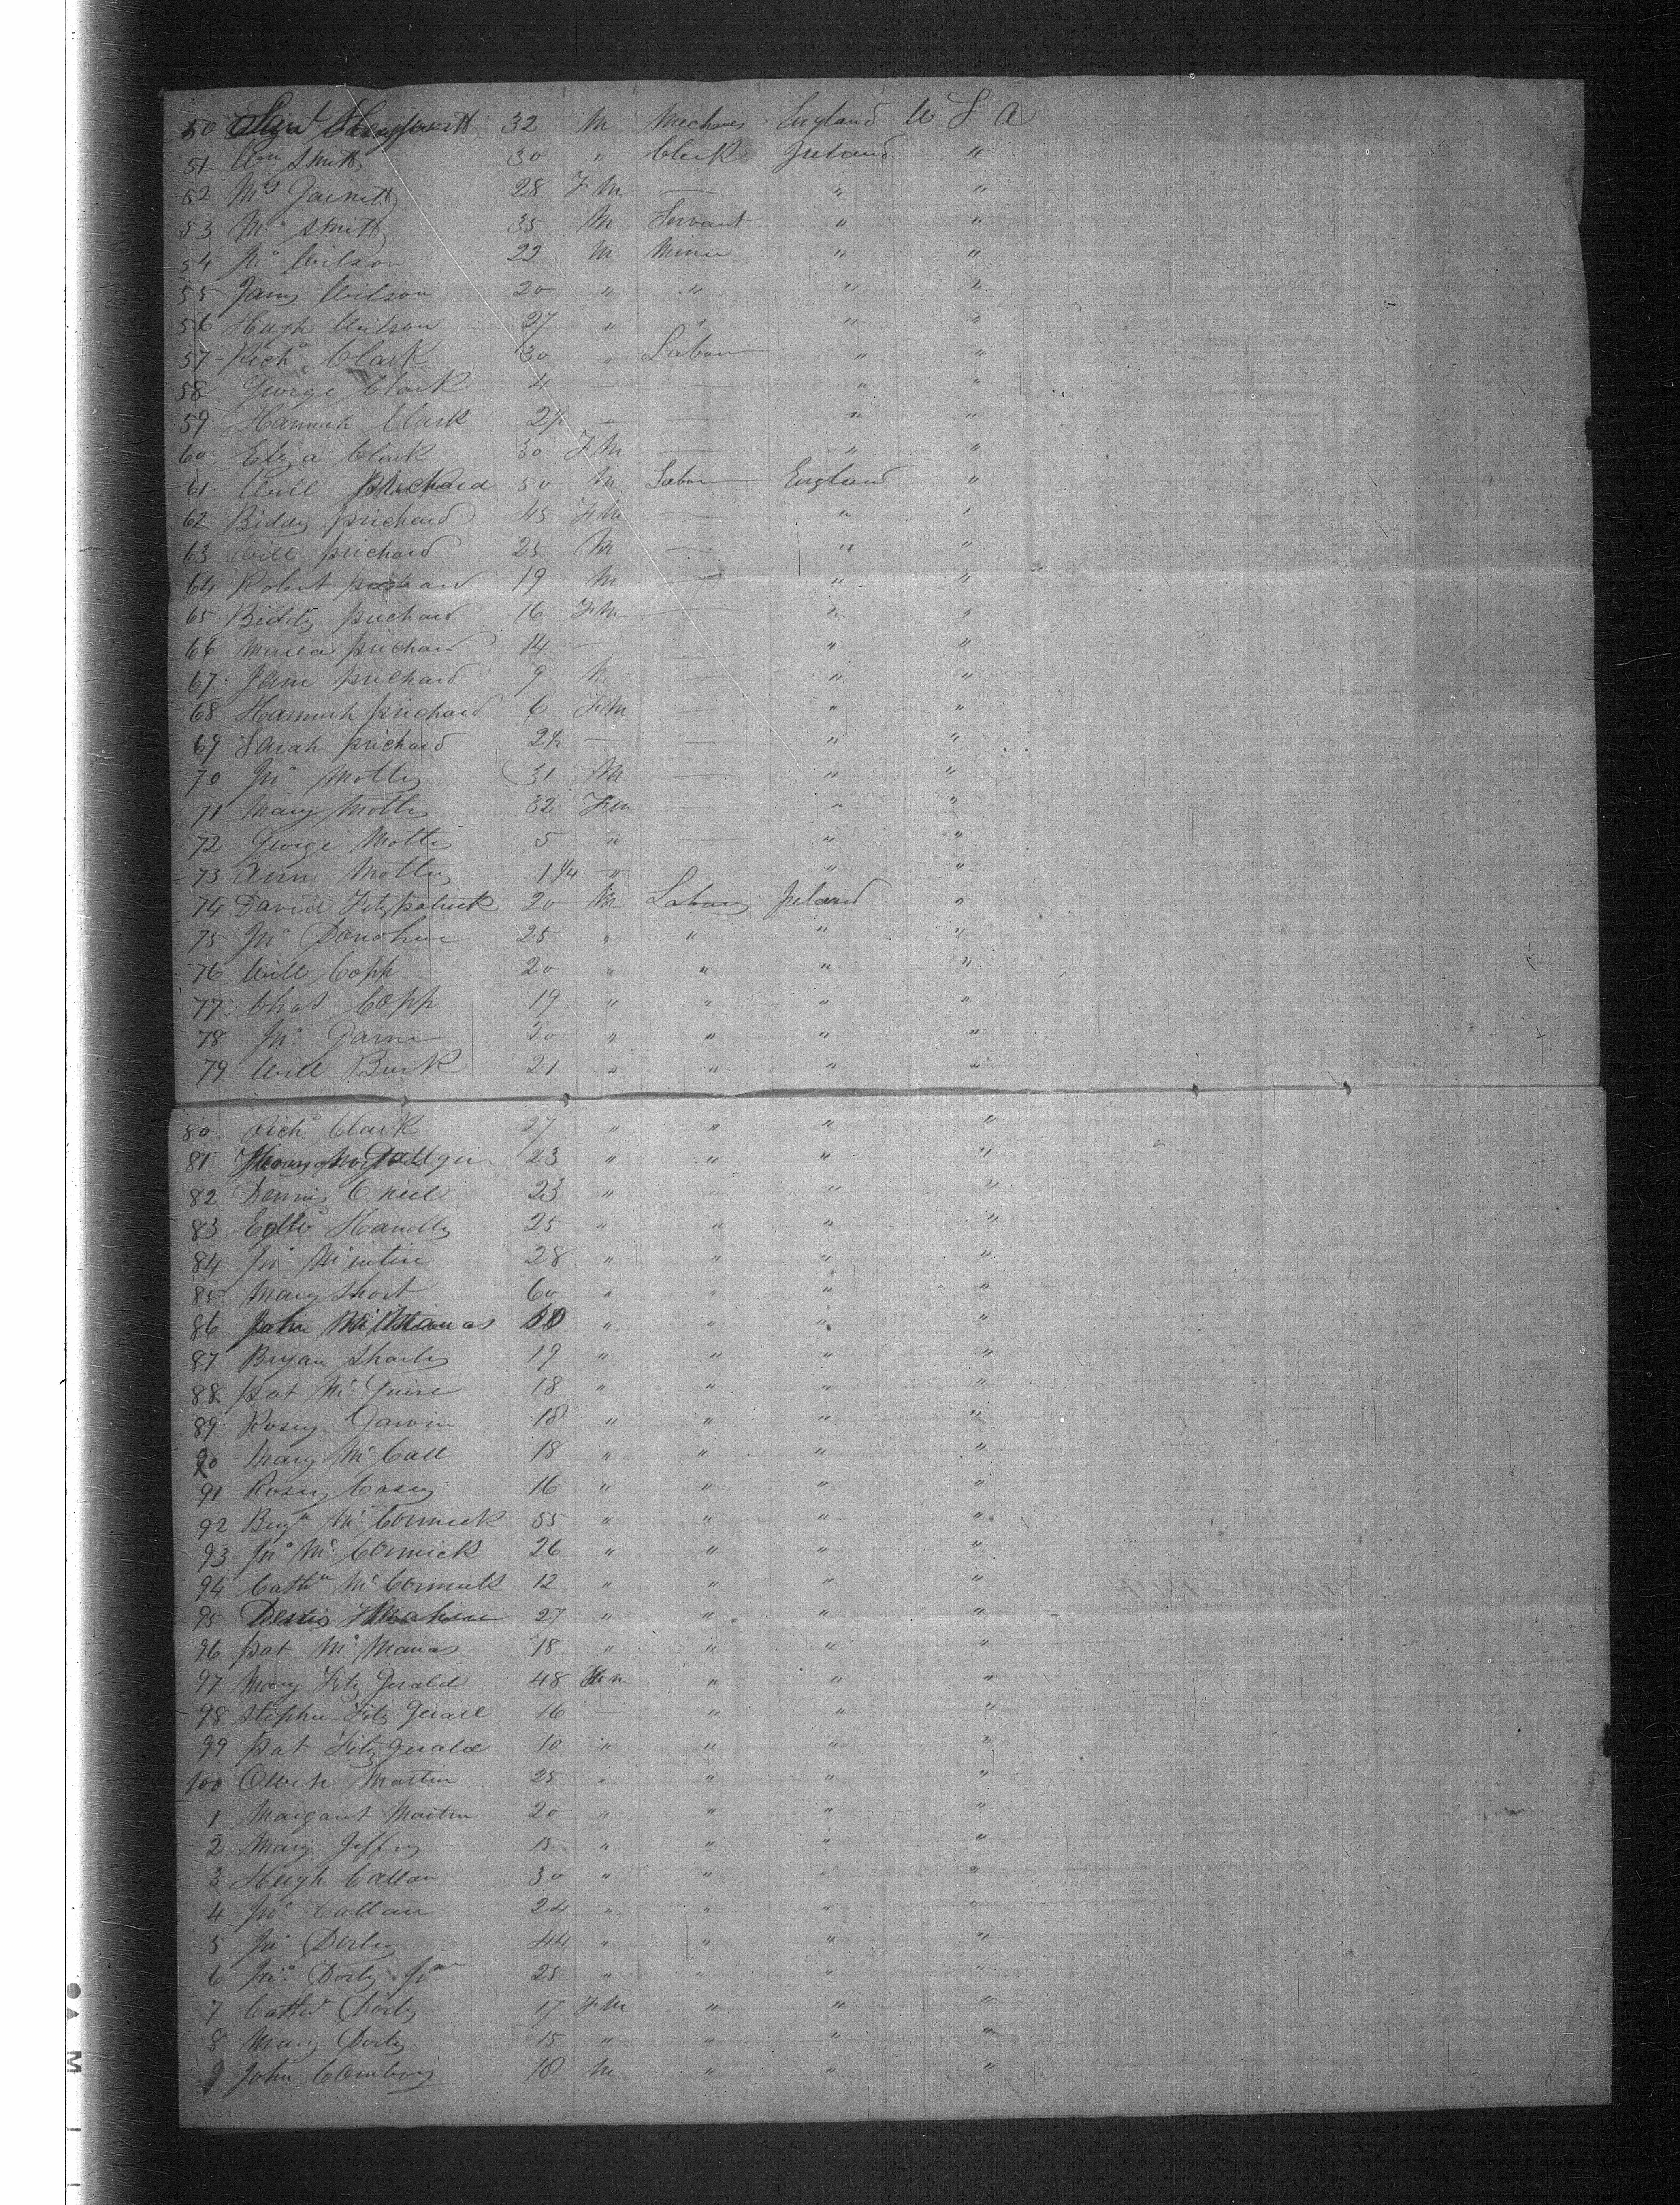 50 32 M Mechanic England U S A
51 Wm Smith 30 " Clerk Ireland "
52 Mrs Garnett 28 F M — " "
53 Mrs Smith 35 M Servant " "
54 Jno Wilson 22 M Miner " "
55 James Wilson 20 " " " "
56 Hugh Wilson 27 " " " "
57 Richd Clark 30 " Labour " "
58 George Clark 4 — — " "
59 Hannah Clark 2½ " — " "
60 Eliza Clark 30 F M — " "
61 Will Prichard 50 M Labour England "
62 Biddy prichard 45 F M — " "
63 Will prichard 25 M — " "
64 Robert prichard 19 M — " "
65 Biddy prichard 16 F M — " "
66 Maria prichard 14 — — " "
67 Jane prichard 9 M — " "
68 Hannah prichard 6 F M — " "
69 Sarah prichard 2½ — — " "
70 Jno Motly 31 M — " "
71 Mary Motly 32 F M — " "
72 George Motly 5 " — " "
73 Ann Motly 1 1/4 " " "
74 David Fitzpatrick 20 M Labour Ireland "
75 Jno Donohue 25 " " " "
76 Will Copp 20 " " " "
77 Chas Copp 19 " " " "
78 Jno 20 " " " "
79 Will Burk 21 " " " "
80 Richd Clark 27 " " " "
81 23 " " " "
82 Dennis O neil 23 " " " "
83 Edwd Handly 25 " " " "
84 Jno Mcintire 28 " " " "
85 Mary Short 60 " " " "
86 John " " " "
87 Bryan 19 " " " "
88 pat Mc Guire 18 " " " "
89 Rosey Garvin 18 " " " "
90 Mary Mc Call 18 " " " "
91 Rosey Casey 16 " " " "
92 Mc Cormick 55 " " " "
93 Jno Mc Cormick 26 " " " "
94 Cathn Mc Cormick 12 " " " "
95 27 " " " "
96 pat Mc Manas 18 " " " "
97 Mary Fitz Gerald 48 " " "
98 Stephen Fitz Gerald 16 — " " "
99 pat Fitz gerald 10 " " " "
100 Martin 25 " " " "
1 Margaret Martin 20 " " " "
2 Mary Jeffrey 15 " " " "
3 Hugh Callan 30 " " " "
4 Jno Callan 24 " " " "
5 Jno Dorly 44 " " " "
6 Jno Dorly Jr 25 " " " "
7 Cathn Dorly 17 F M " " "
8 Mary Dorly 15 " " " "
9 John 18 M " " "